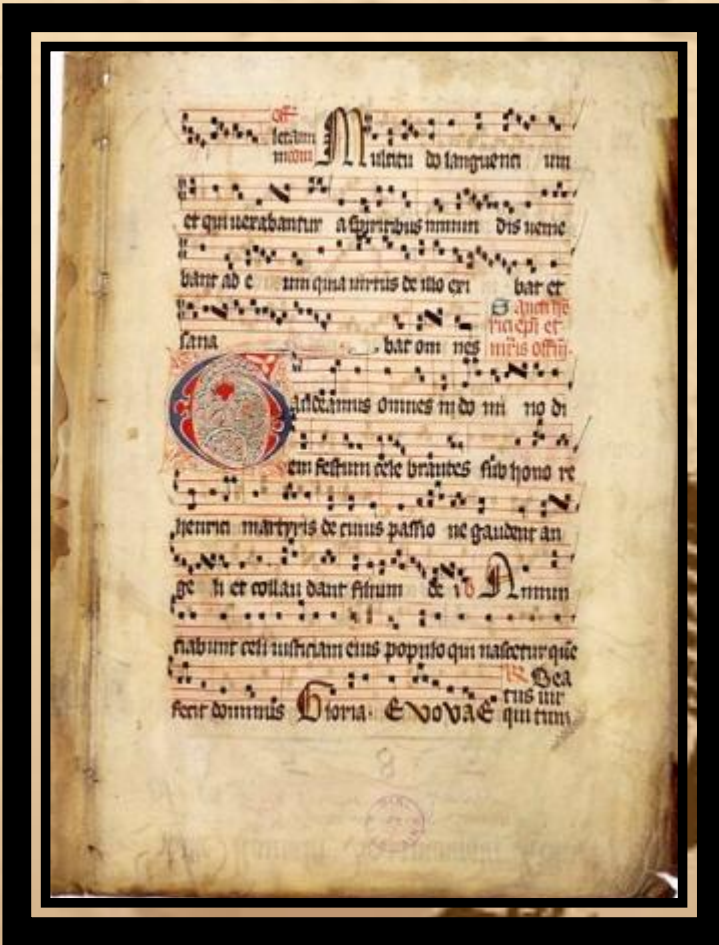 off
Multitu do languenci um
et qui uexabantur a spiritibus inmun dis uenie
bant ad e um quia uirtus de illo exi bat et
Sancti hen
rici epi et
sana bat om nes mris offm.
Gaudeamus omnes in do mi no di
em festum cele brantes sub hono re
henrici martyris de cuius passio ne gaudent an
ge li et collau dant filium de i Annun
ciabunt celi iusticiam eius populo qui nascetur que
Bea
tus uir
fecit dominus Gloria. EVOVAE qui tim